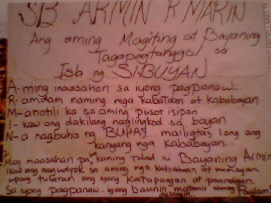 SB ARMIN R MARIN
Ang aming Magiting at Bayaning
Tagapagtanggol sa
Isla ng SIBUYAN
A-ming maasahan sa iyong pagpanaw..
R-amdam naming mga kabataan at kababayan
M-anatili ka sa aming puso't isipan
I-kaw ang dakilang naglingkod sa bayan
N-a nagbuhis ng BUHAY.. mailigtas lang ang
kanyang mga kababayan..
May maasahan pa kaming tulad ni Bayaning Armin
Ikaw ang nagudyok sa aming mga kabataan at
upang tularan ang iyong katapangan at
Sa iyong pagpanaw.. iyong baunin